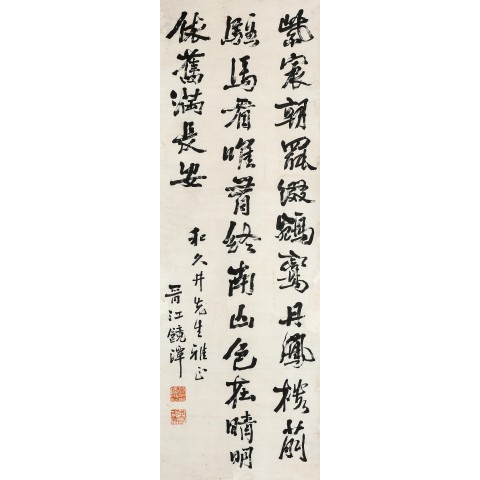 紫宸朝罷綴鵷鸞丹鳳樓前
馬看唯終南山色在晴明
依舊滿長安
和久井先生雅正
晉江鏡潭